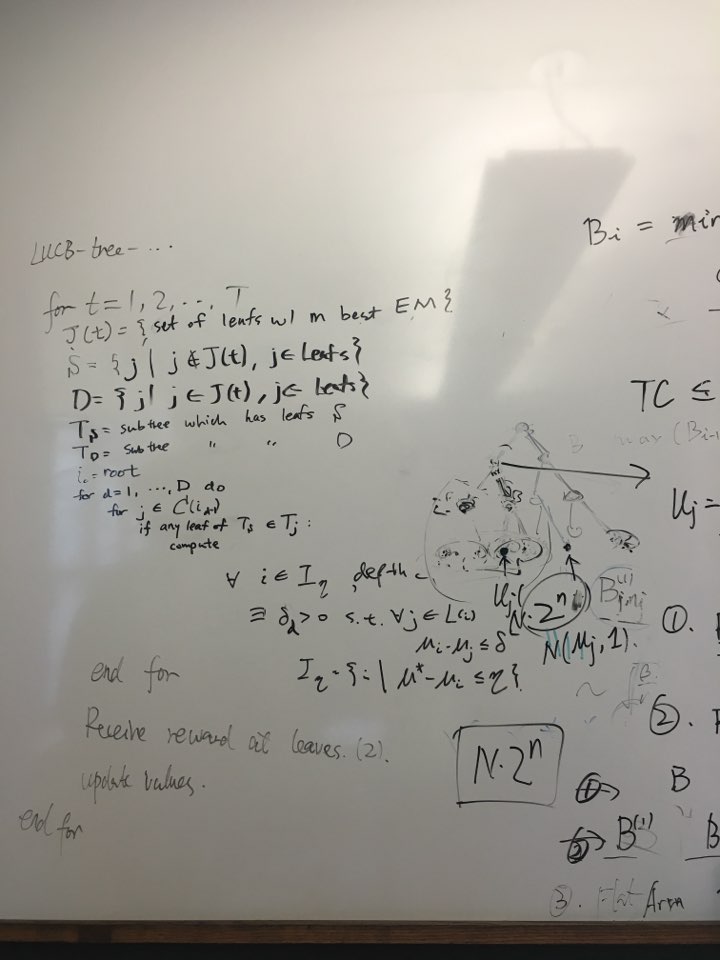 LUCB-tree-...
for t=1, 2, ..., T
J(t) = { set of leafs w/ m best EM }
S = { j | j ∉ J(t), j ∈ Leafs }
D = { j | j ∈ J(t), j ∈ Leafs }
T_S = subtree which has leafs S
T_D = subtree " " D
i_0 = root
for d=1, ..., D do
for j ∈ C(i_{d-1})
if any leaf of T_S ∈ T_j :
compute
∀ i ∈ I_η, depth
∃ δ_d > 0 s.t. ∀ j ∈ L(i)
μ_i - μ_j ≤ δ
I_η = { i | μ* - μ_i ≤ η }
end for
Receive reward at leaves. (2).
update values.
end for
B_i = min
TC ≤
max (B_{i-1}
μ_j =
N·2^n
N(μ_j, 1).
①.
②.
N·2^n
① → B
② → B^(1) B
③. Flat Arm